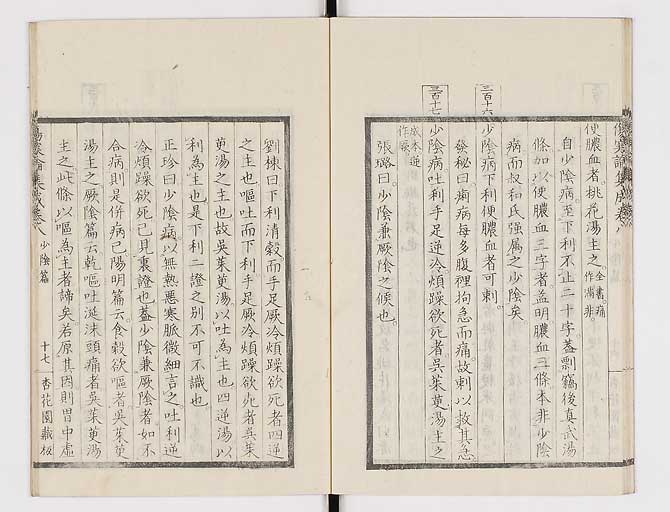 便膿血者。桃花湯主之。全書痛作濇非。
自少陰病。至下利不止二十字。蓋剽竊後真武湯
條。加以便膿血三字者。蓋明膿血三條。本非少陰
病。而叔和氏強屬之少陰矣。
三百十六
少陰病。下利便膿血者。可刺。
發秘曰。痢病每多腹裡拘急而痛。故刺以救其急
三百十七
少陰病。吐利。手足逆冷。煩躁欲死者。吳茱萸湯主之。
成本逆作厥
張璐曰。少陰兼厥陰之候也。
劉棟曰。下利清穀。而手足厥冷。煩躁欲死者。四逆
之主也。嘔吐而下利。手足厥冷。煩躁欲死者。吳茱
萸湯之主也。故吳茱萸湯。以吐為主也。四逆湯。以
利為主也。是下利二證之別。不可不識也。
正珍曰。少陰病。以無熱惡寒脈微細言之。吐利逆
冷。煩躁欲死。已見裏證也。蓋少陰兼厥陰者。如不
合病。則是併病已。陽明篇云。食穀欲嘔者。吳茱萸
湯主之。厥陰篇云。乾嘔吐涎沫。頭痛者。吳茱萸湯
主之。此條以嘔為主者諦矣。若原其因則胃中虛
傷寒論集成卷八 少陰篇 十七 杏花園藏板